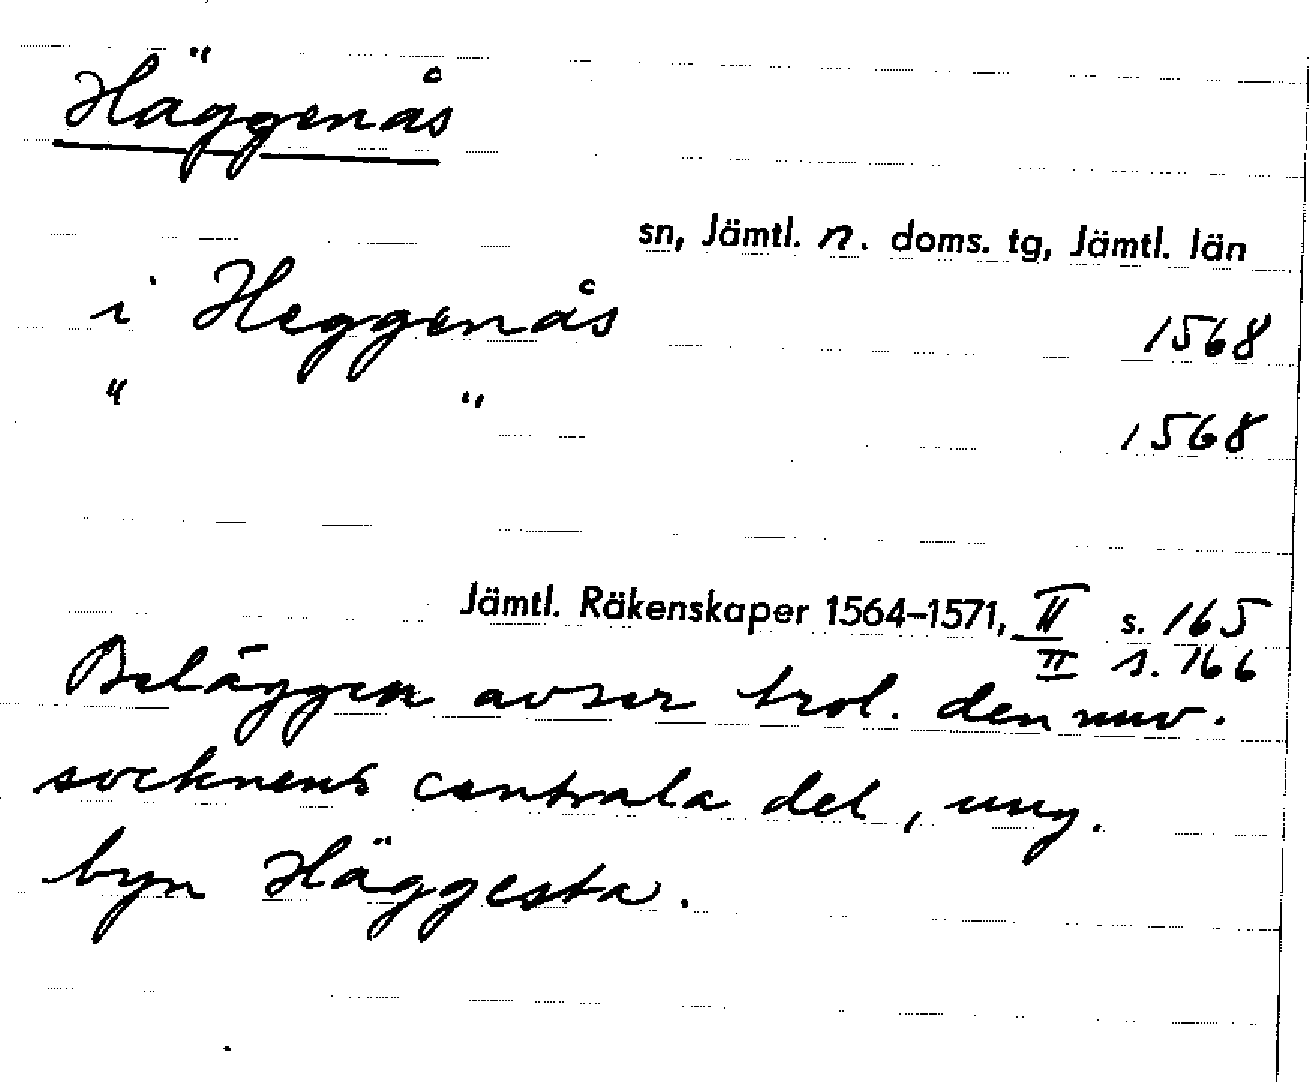 Häggenås
sn, Jämtl. n. doms. tg, Jämtl. län
i Heggenås 1568
" " 1568
Jämtl. Räkenskaper 1564–1571, II s. 165
II s. 166
Beläggen avser trol. den nuv.
socknens centrala del, ung.
byn Häggesta.